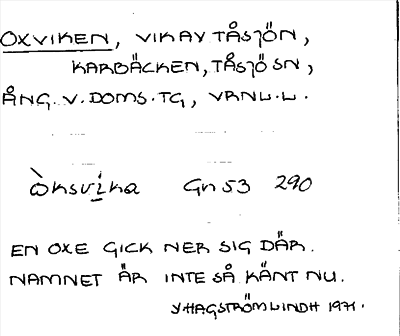 OXVIKEN, VIK AV TÅSJÖN,
KARBÄCKEN, TÅSJÖ SN,
ÅNG. V. DOMS. TG, VRNL. L.
Òksvika Gn 53 290
EN OXE GICK NER SIG DÄR.
NAMNET ÄR INTE SÅ KÄNT NU.
Y HAGSTRÖM LINDH 1971.